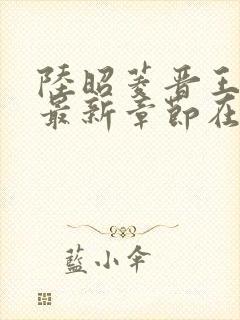 陸昭菱晋王
最新章節在
藍小傘